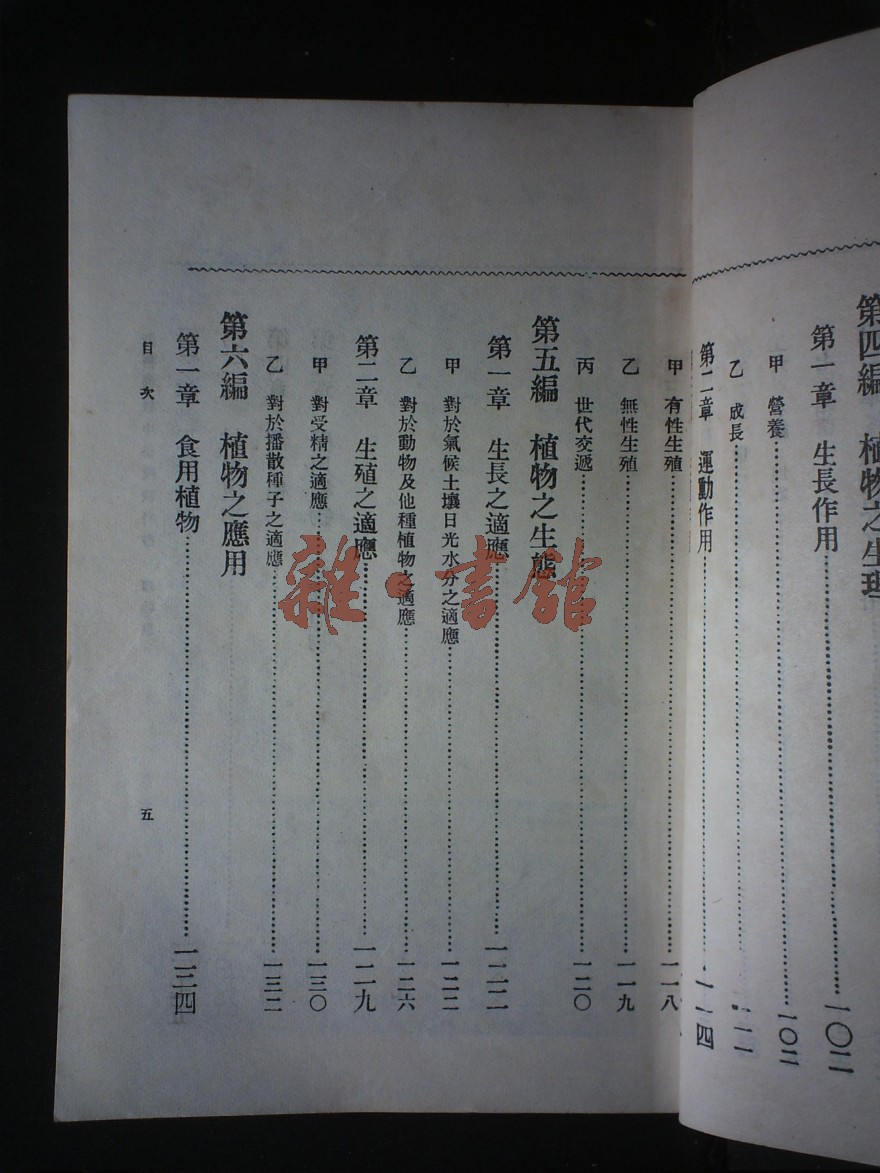 第四編 植物之生理
第一章 生長作用……一〇二
甲 營養……一〇二
乙 成長……一一一
第二章 運動作用……一一四
甲 有性生殖……一一八
乙 無性生殖……一一九
丙 世代交遞……一二〇
第五編 植物之生態
第一章 生長之適應……一二二
甲 對於氣候土壤日光水分之適應……一二二
乙 對於動物及他種植物之適應……一二六
第二章 生殖之適應……一二九
甲 對受精之適應……一三〇
乙 對於播散種子之適應……一三二
第六編 植物之應用
第一章 食用植物……一三四
目次
五
雜·書館